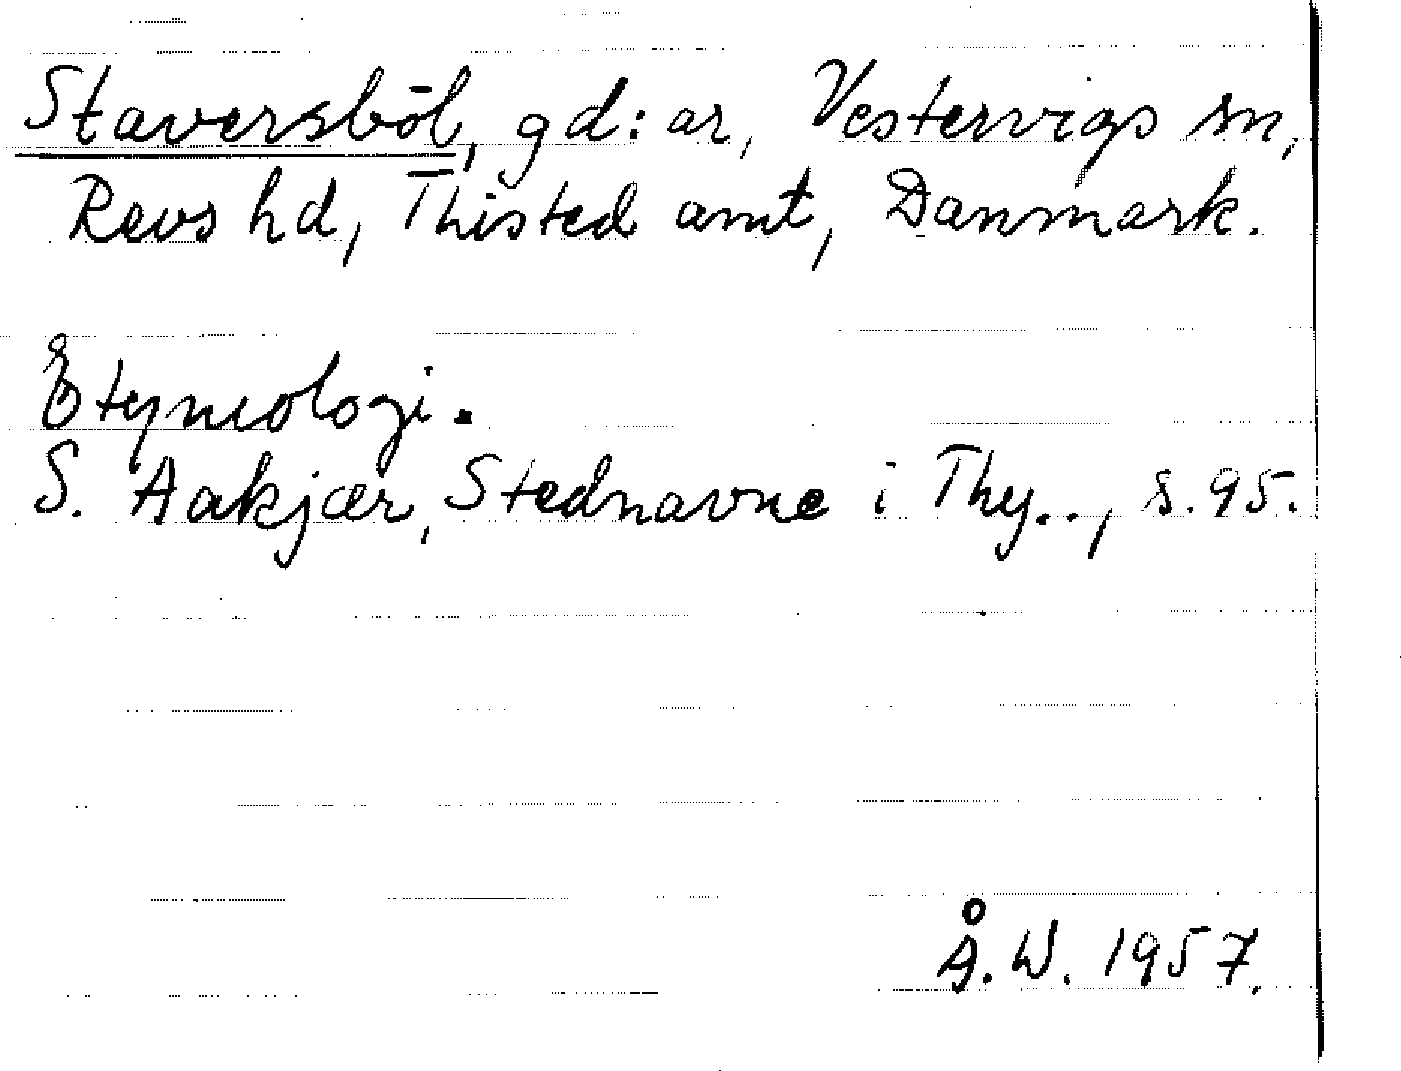 Staversböl, gd:ar, Vestervigs sn,
Revs hd, Thisted amt, Danmark.
Etymologi.
S. Aakjær, Stednavne i Thy.., s. 95.
Å. W. 1957.